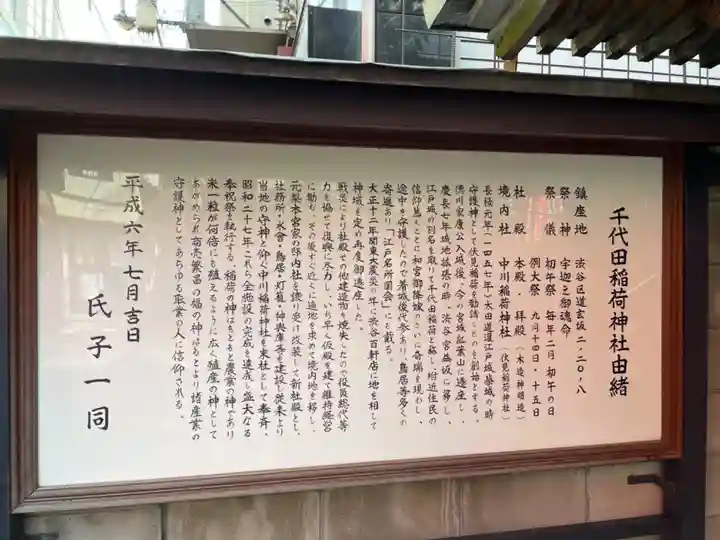 千代田稲荷神社由緒
鎮座地 渋谷区道玄坂二・二〇・八
祭神 宇迦之御魂命
祭儀 初午祭 毎年二月初午の日
例大祭 九月十四日・十五日
社殿 本殿・拝殿(木造神明造)
境内社 中川稲荷神社(伏見稲荷神社)
長禄元年(一四五七年)太田道灌江戸城築城の時
守護神として伏見稲荷を勧請したのを創始とする。
徳川家康公入城後、今の宮城紅葉山に遷座し、
慶長七年城地拡張の時、渋谷宮益坂に移し、
江戸城の別名を取りて千代田稲荷と称し附近住民の
信仰篤えことに和宮御降嫁のさい奇瑞を現わし、
途中を守護したので着城後代参あり、鳥居等多くの
寄進あり「江戸名所図会」にも載る。
大正十二年関東大震災の年に渋谷百軒店に地を相して
神域を定め再度御遷座した。
戦災により社殿その他建造物を焼失したので役員総代等
力を協せて復興に尽力し、いち早く仮殿を建て維持経営
に励む、その後すぐ近くに適地を求めて境内地を移し、
元梨本宮家の邸内社を譲り受け改装して新社殿とし、
社務所・水舎・鳥居・灯籠・神輿庫等を建設し従来より
当地の守神と仰ぐ中川稲荷神社を末社として奉斉、
昭和二十七年これら全施設の完成を達成し盛大なる
奉祝祭を執行する、稲荷の神はもともと農業の神であり
米一粒が何倍にも殖えるように広く殖産の神として
あがめられ商売繁昌の福の神はもとより諸産業の
守護神としてあらゆる職業の人に信仰される。
平成六年七月吉日
氏子一同